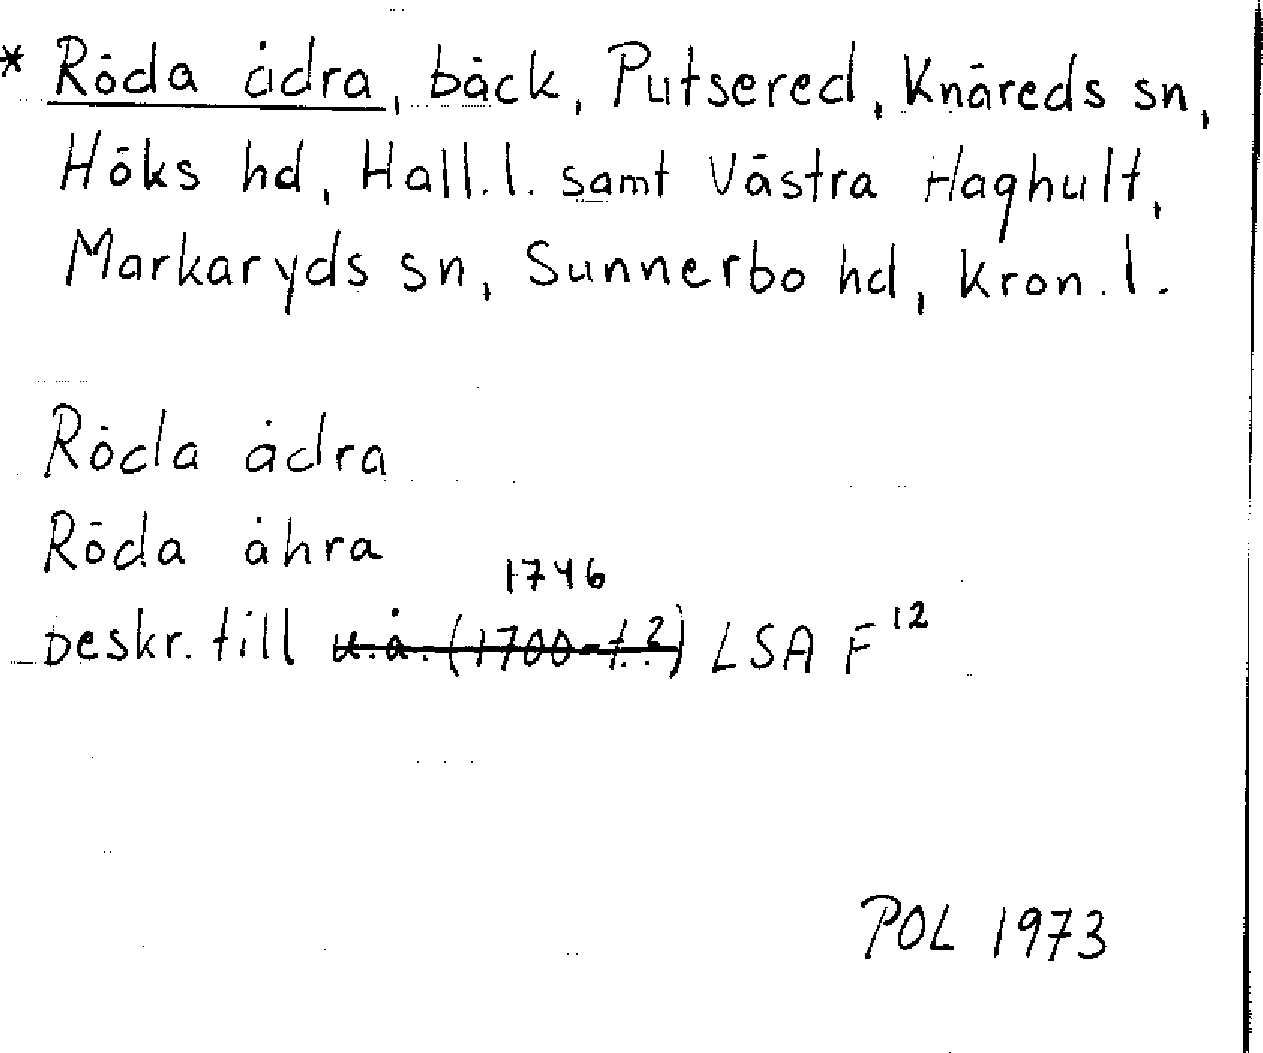 * Röda ådra, bäck, Putsered, Knäreds sn,
Höks hd, Hall.l. samt Västra Haghult,
Markaryds sn, Sunnerbo hd, Kron.l.
Röda ådra
Röda åhra
1746
Deskr. till u.å. (1700-t.?) LSA F 12
POL 1973